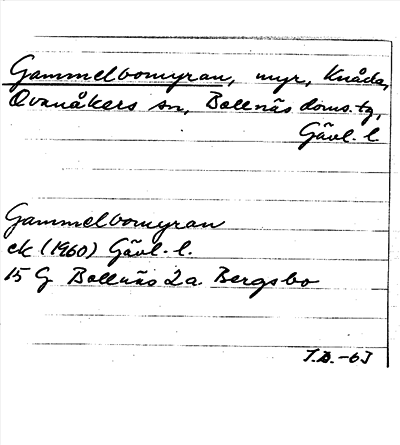 Gammelbomyran, myr, Knåda,
Ovanåkers sn, Bollnäs doms.tg,
Gävl. l
Gammelbomyran
ek (1960) Gävl. l.
15 G Bollnäs 2a Bergsbo
T.B. -63